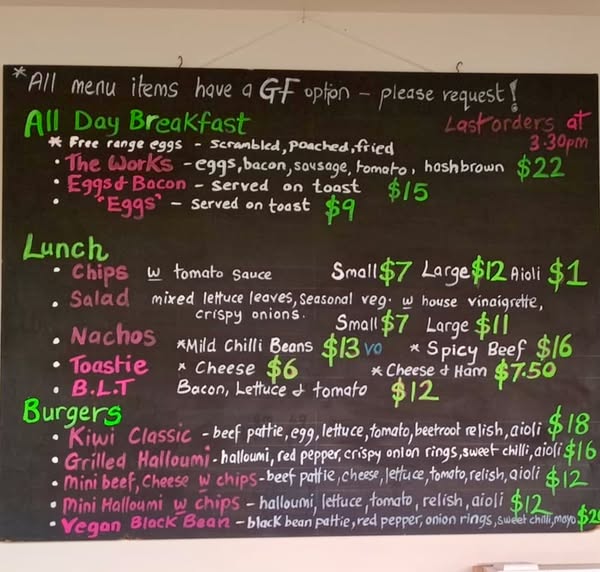 *All menu items have a GF option - please request!
All Day Breakfast Last orders at
* Free range eggs - scrambled, poached, fried 3.30pm
• The Works - eggs, bacon, sausage, tomato, hashbrown $22
• Eggs & Bacon - served on toast $15
• 'Eggs' - served on toast $9
Lunch
• Chips w tomato sauce Small $7 Large $12 Aioli $1
• Salad mixed lettuce leaves, seasonal veg. w house vinaigrette,
crispy onions. Small $7 Large $11
• Nachos *Mild Chilli Beans $13 VO * Spicy Beef $16
• Toastie * Cheese $6 * Cheese & Ham $7.50
• B.L.T Bacon, Lettuce & tomato $12
Burgers
• Kiwi Classic - beef pattie, egg, lettuce, tomato, beetroot relish, aioli $18
• Grilled Halloumi - halloumi, red pepper, crispy onion rings, sweet chilli, aioli $16
• Mini beef, Cheese w chips - beef pattie, cheese, lettuce, tomato, relish, aioli $12
• Mini Halloumi w chips - halloumi, lettuce, tomato, relish, aioli $12
• Vegan Black Bean - black bean pattie, red pepper, onion rings, sweet chilli, mayo